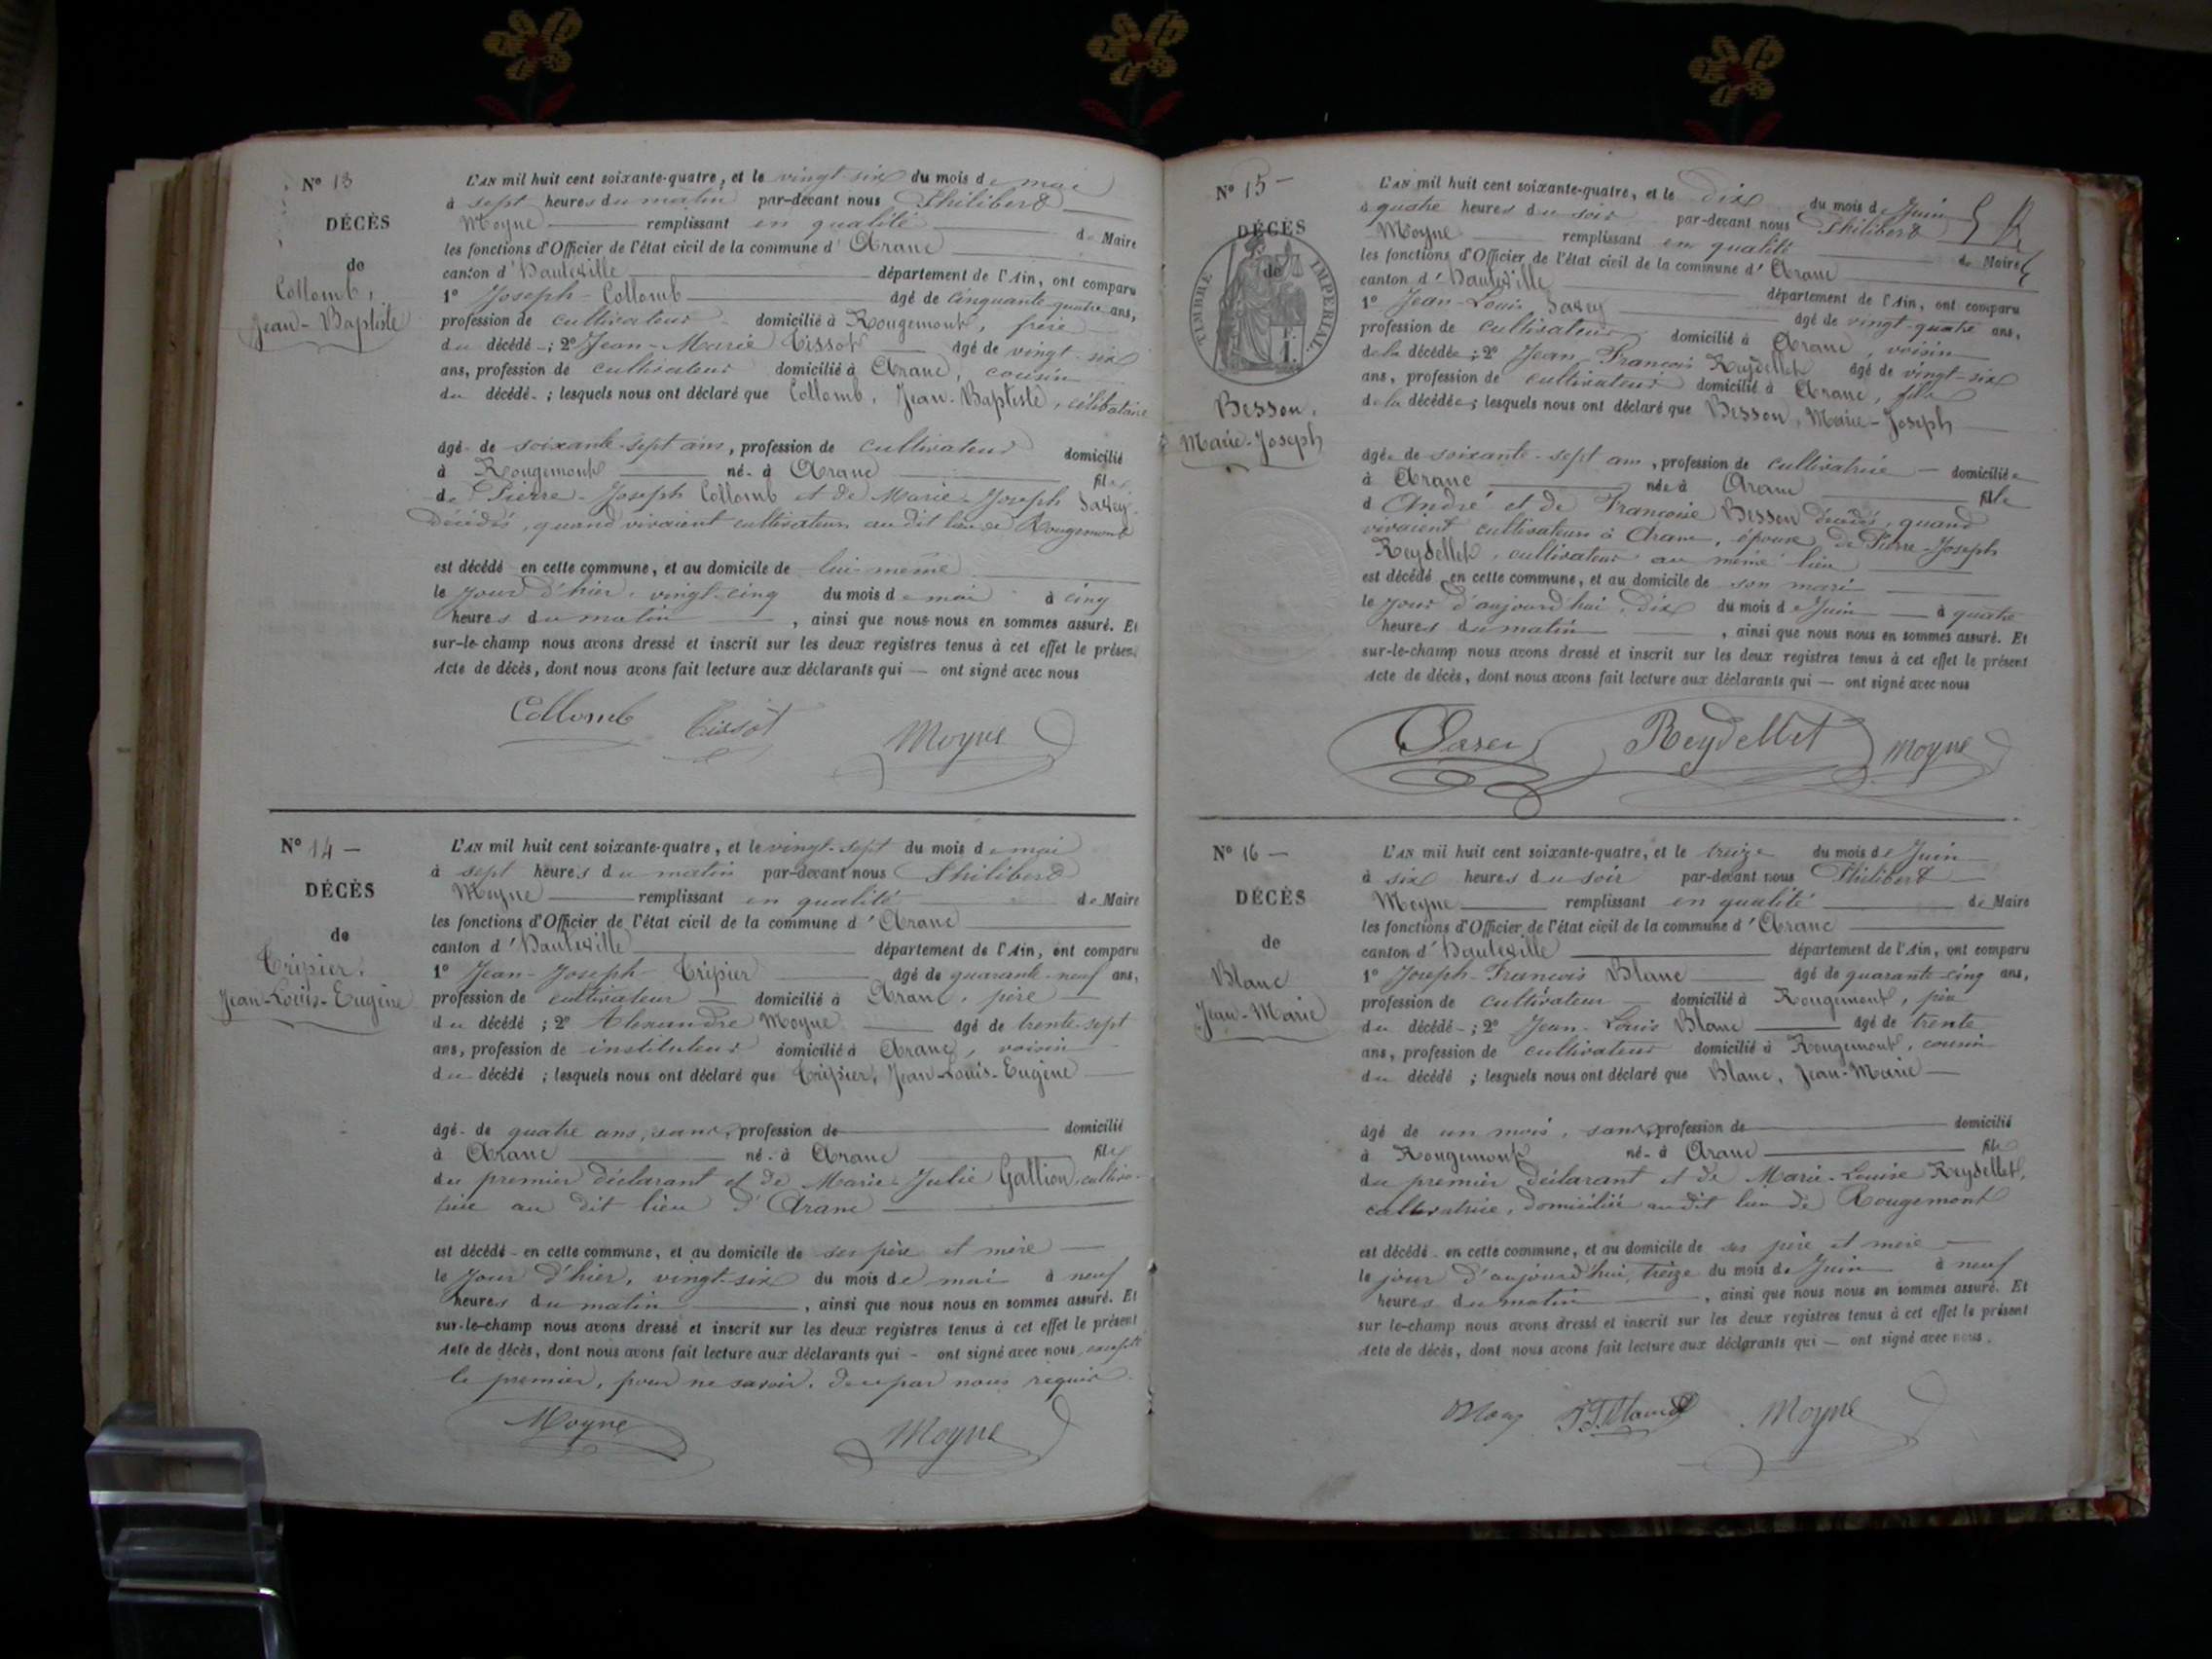 N° 13
DÉCÈS
de
Collomb,
Jean-Baptiste
L'AN mil huit cent soixante-quatre, et le vingt six du mois de mai
à sept heures du matin par-devant nous Philibert
Moyne remplissant en qualité de Maire
les fonctions d'Officier de l'état civil de la commune d'Aranc
canton d'Hauteville département de l'Ain, ont comparu
1° Joseph Collomb âgé de cinquante-quatre ans,
profession de cultivateur domicilié à Rougemont, frère
du décédé ; 2° Jean-Marie Tissot âgé de vingt-six
ans, profession de cultivateur domicilié à Aranc, cousin
du décédé ; lesquels nous ont déclaré que Collomb, Jean-Baptiste, célibataire
âgé de soixante-sept ans, profession de cultivateur domicilié
à Rougemont né à Aranc fils
de Pierre-Joseph Collomb et de Marie-Joseph
décédés, quand vivaient cultivateurs au dit lieu de Rougemont
est décédé en cette commune, et au domicile de lui-même
le jour d'hier, vingt-cinq du mois de mai à cinq
heures du matin, ainsi que nous nous en sommes assuré. Et
sur-le-champ nous avons dressé et inscrit sur les deux registres tenus à cet effet le présent
Acte de décès, dont nous avons fait lecture aux déclarants qui — ont signé avec nous
Collomb Tissot Moyne
N° 14 —
DÉCÈS
de
Tripier,
Jean-Louis-Eugène
L'AN mil huit cent soixante-quatre, et le vingt-sept du mois de mai
à sept heures du matin par-devant nous Philibert
Moyne remplissant en qualité de Maire
les fonctions d'Officier de l'état civil de la commune d'Aranc
canton d'Hauteville département de l'Ain, ont comparu
1° Jean-Joseph Tripier âgé de quarante-neuf ans,
profession de cultivateur domicilié à Aranc, père
du décédé ; 2° Alexandre Moyne âgé de trente-sept
ans, profession de instituteur domicilié à Aranc, voisin
du décédé ; lesquels nous ont déclaré que Tripier, Jean-Louis-Eugène
âgé de quatre ans, sans profession de domicilié
à Aranc né à Aranc fils
du premier déclarant et de Marie-Julie Gallion, cultiva-
trice au dit lieu d'Aranc
est décédé en cette commune, et au domicile de ses père et mère
le jour d'hier, vingt-six du mois de mai à neuf
heures du matin, ainsi que nous nous en sommes assuré. Et
sur-le-champ nous avons dressé et inscrit sur les deux registres tenus à cet effet le présent
Acte de décès, dont nous avons fait lecture aux déclarants qui — ont signé avec nous excepté
le premier, pour ne savoir, de ce par nous requis
Moyne Moyne
N° 15 —
DÉCÈS
de
TIMBRE IMPERIAL
Besson,
Marie-Joseph
L'AN mil huit cent soixante-quatre, et le dix du mois de Juin
à quatre heures du soir par-devant nous Philibert
Moyne remplissant en qualité de Maire
les fonctions d'Officier de l'état civil de la commune d'Aranc
canton d'Hauteville département de l'Ain, ont comparu
1° Jean-Louis âgé de vingt-quatre ans,
profession de cultivateur domicilié à Aranc, voisin
de la décédée ; 2° Jean François Reydellet âgé de vingt-six
ans, profession de cultivateur domicilié à Aranc, fils
de la décédée ; lesquels nous ont déclaré que Besson, Marie-Joseph
âgée de soixante-sept ans, profession de cultivatrice — domiciliée
à Aranc née à Aranc fille
d'André et de Françoise Besson décédés, quand
vivaient cultivateurs à Aranc, épouse de Pierre-Joseph
Reydellet, cultivateur au même lieu
est décédé en cette commune, et au domicile de son mari
le jour d'aujourd'hui, dix du mois de Juin à quatre
heures du matin, ainsi que nous nous en sommes assuré. Et
sur-le-champ nous avons dressé et inscrit sur les deux registres tenus à cet effet le présent
Acte de décès, dont nous avons fait lecture aux déclarants qui — ont signé avec nous
Reydellet Moyne
N° 16 —
DÉCÈS
de
Blanc
Jean-Marie
L'AN mil huit cent soixante-quatre, et le treize du mois de Juin
à six heures du soir par-devant nous Philibert
Moyne remplissant en qualité de Maire
les fonctions d'Officier de l'état civil de la commune d'Aranc
canton d'Hauteville département de l'Ain, ont comparu
1° Joseph-François Blanc âgé de quarante-cinq ans,
profession de cultivateur domicilié à Rougemont, père
du décédé ; 2° Jean-Louis Blanc âgé de trente
ans, profession de cultivateur domicilié à Rougemont, cousin
du décédé ; lesquels nous ont déclaré que Blanc, Jean-Marie
âgé de un mois, sans profession de domicilié
à Rougemont né à Aranc fils
du premier déclarant et de Marie-Louise Reydellet,
cultivatrice, domiciliée au dit lieu de Rougemont
est décédé en cette commune, et au domicile de ses père et mère
le jour d'aujourd'hui, treize du mois de Juin à neuf
heures du matin, ainsi que nous nous en sommes assuré. Et
sur le-champ nous avons dressé et inscrit sur les deux registres tenus à cet effet le présent
Acte de décès, dont nous avons fait lecture aux déclarants qui — ont signé avec nous.
Moyne